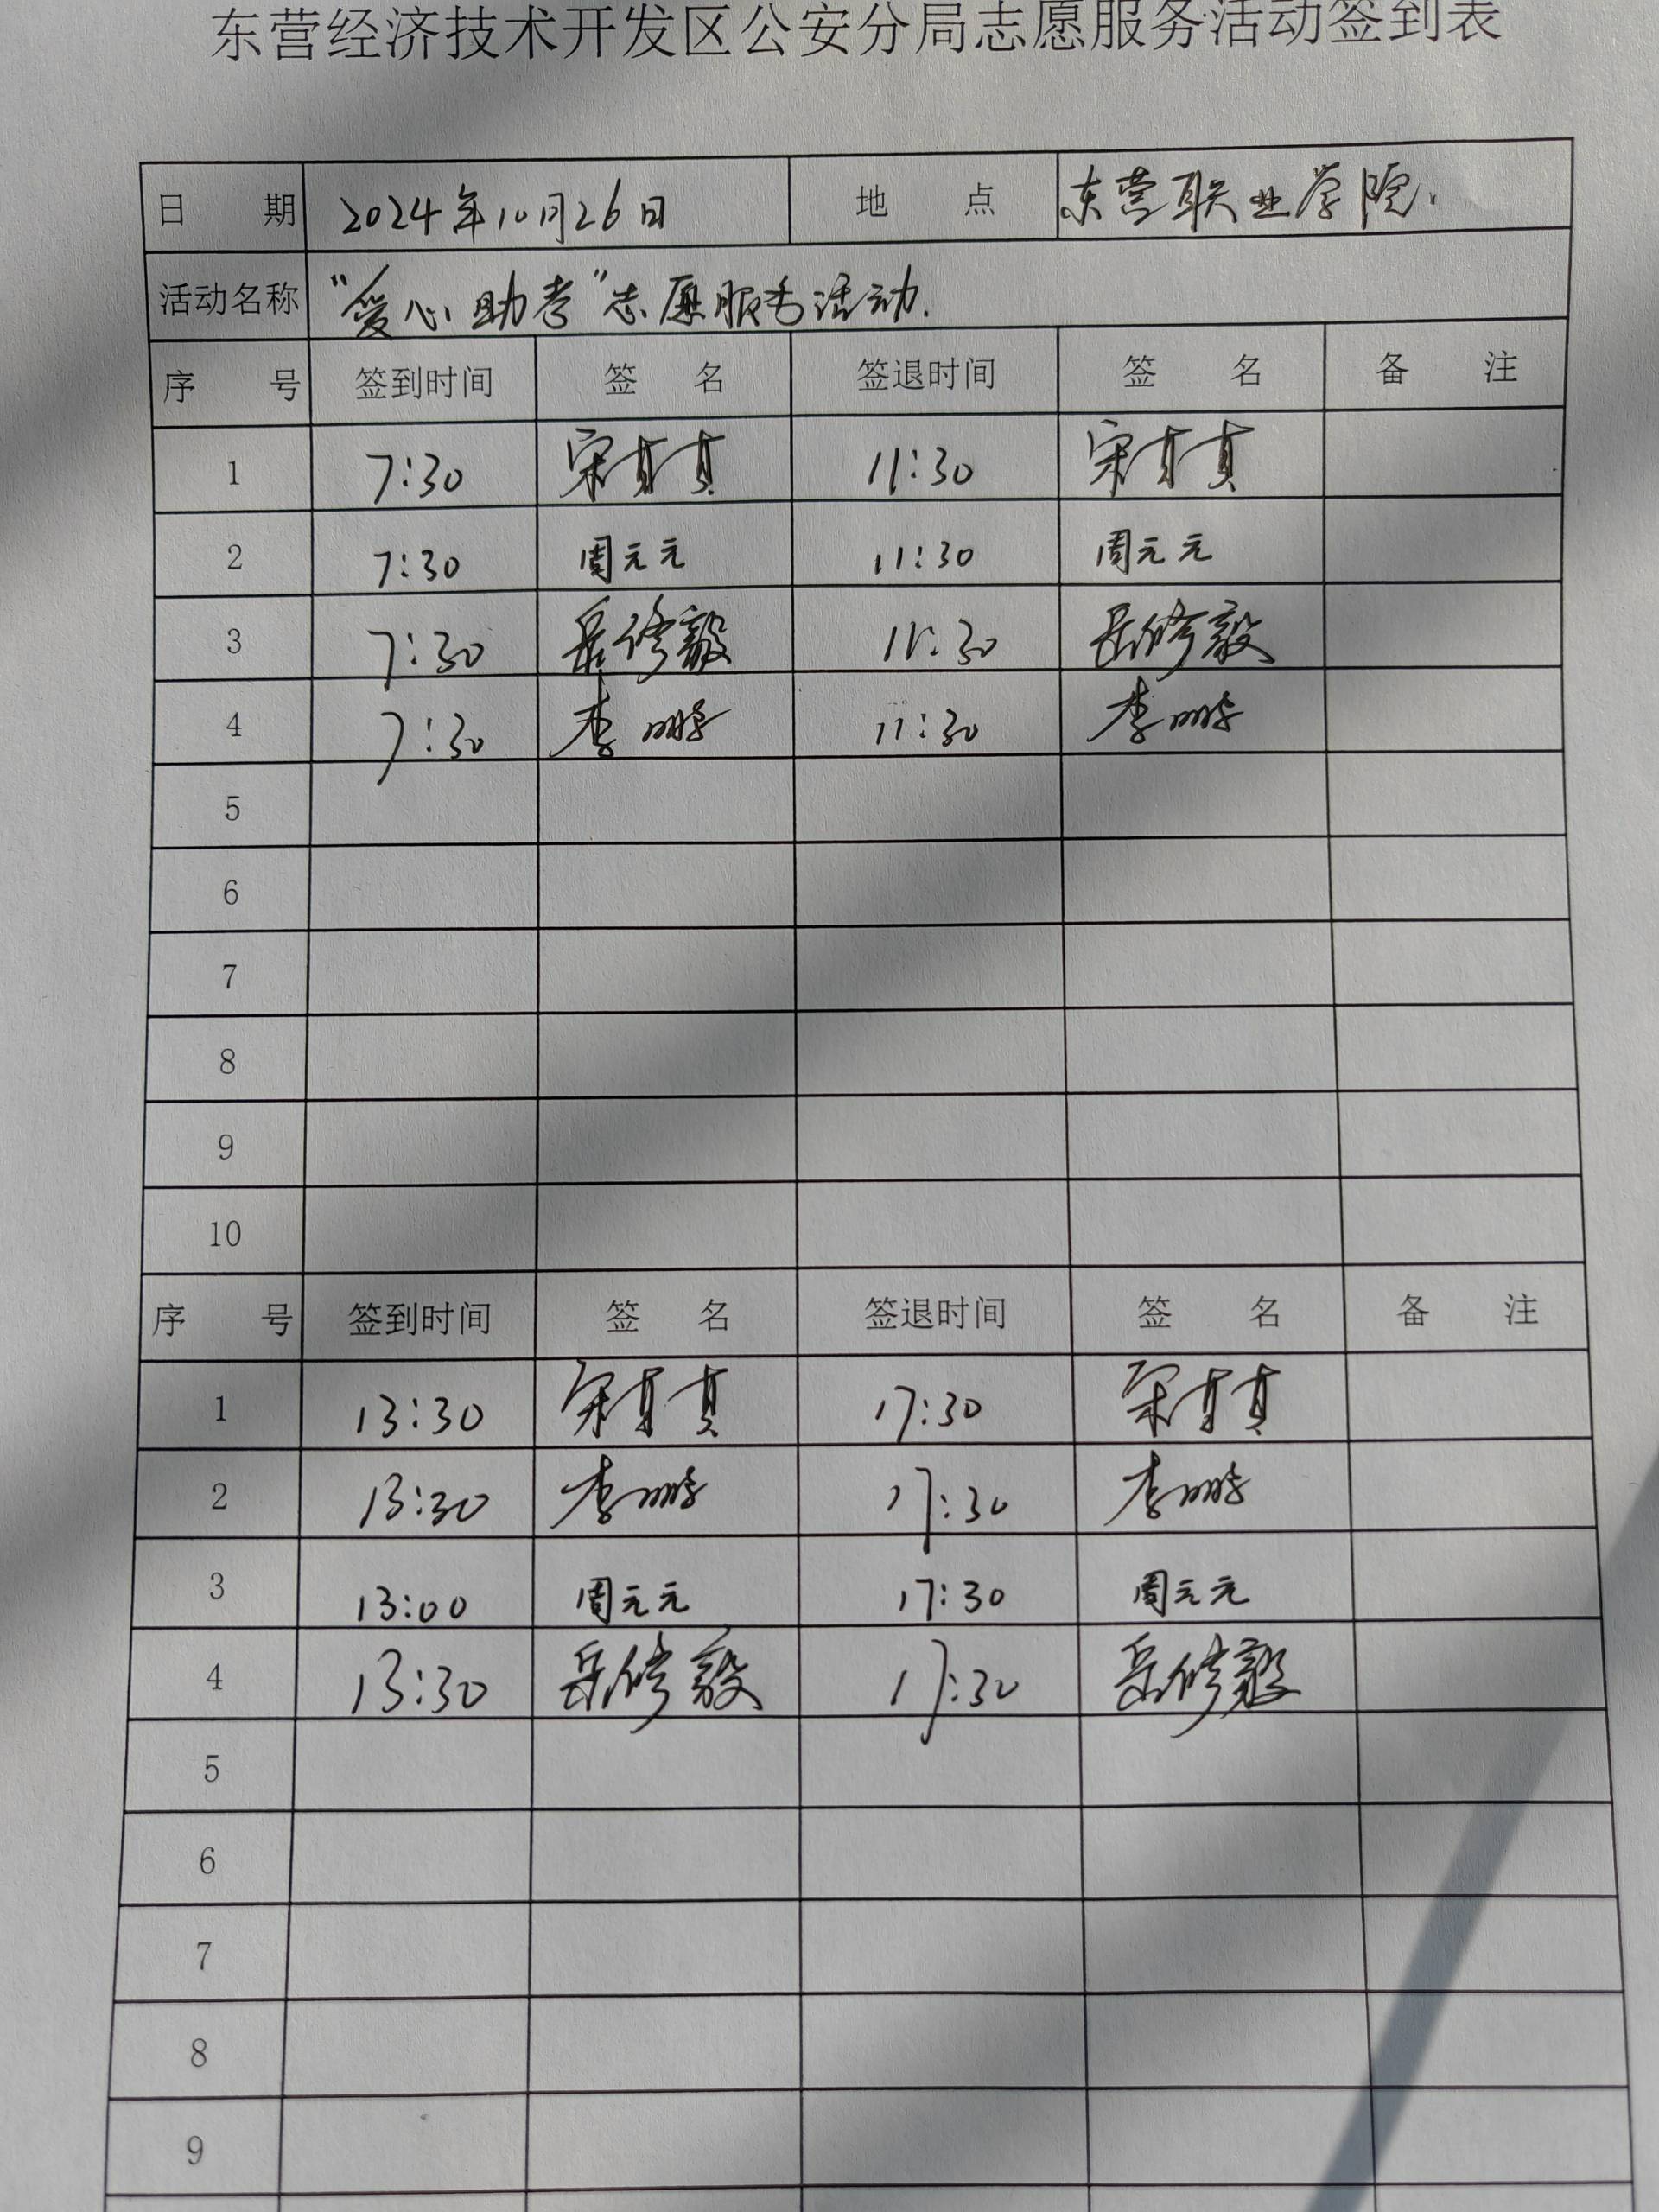 东营经济技术开发区公安分局志愿服务活动签到表
日 期 2024年10月26日 地 点 东营职业学院.
活动名称 “爱心助考”志愿服务活动.
序 号 签到时间 签 名 签退时间 签 名 备 注
1 7:30 宋真真 11:30 宋真真
2 7:30 周元元 11:30 周元元
3 7:30 岳修毅 11:30 岳修毅
4 7:30 李鹏 11:30 李鹏
5
6
7
8
9
10
序 号 签到时间 签 名 签退时间 签 名 备 注
1 13:30 宋真真 17:30 宋真真
2 13:30 李鹏 17:30 李鹏
3 13:00 周元元 17:30 周元元
4 13:30 岳修毅 17:30 岳修毅
5
6
7
8
9